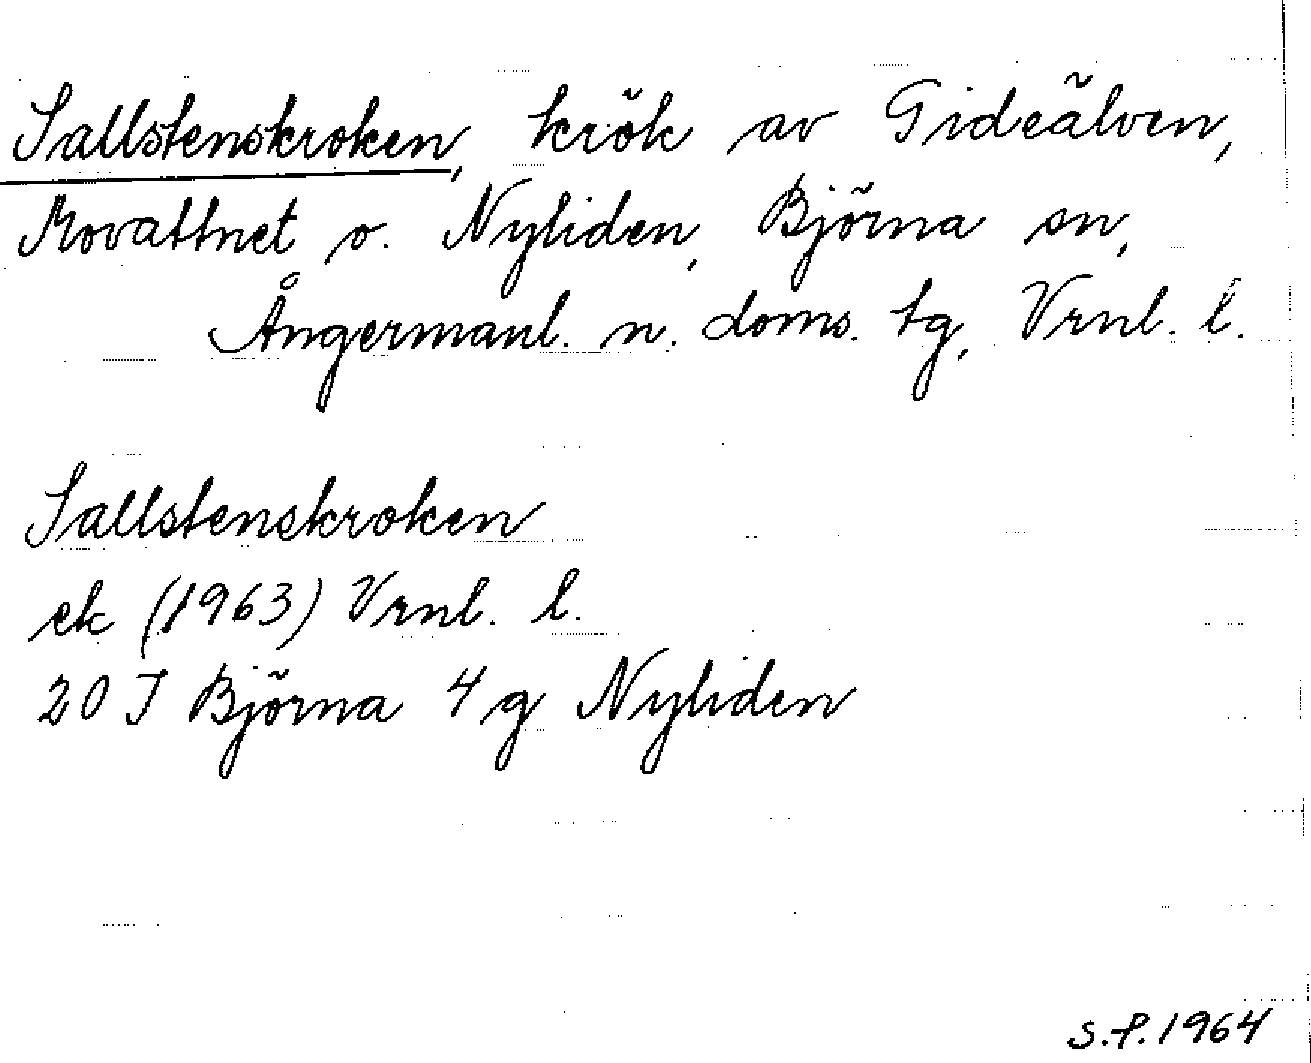 Sallstenskroken, krök av Gideälven,
Movattnet o. Nyliden, Björna sn,
Ångermanl. n. doms. tg, Vrnl. l.
Sallstenskroken
ek (1963) Vrnl. l.
20 J Björna 4 g Nyliden
S.P. 1964